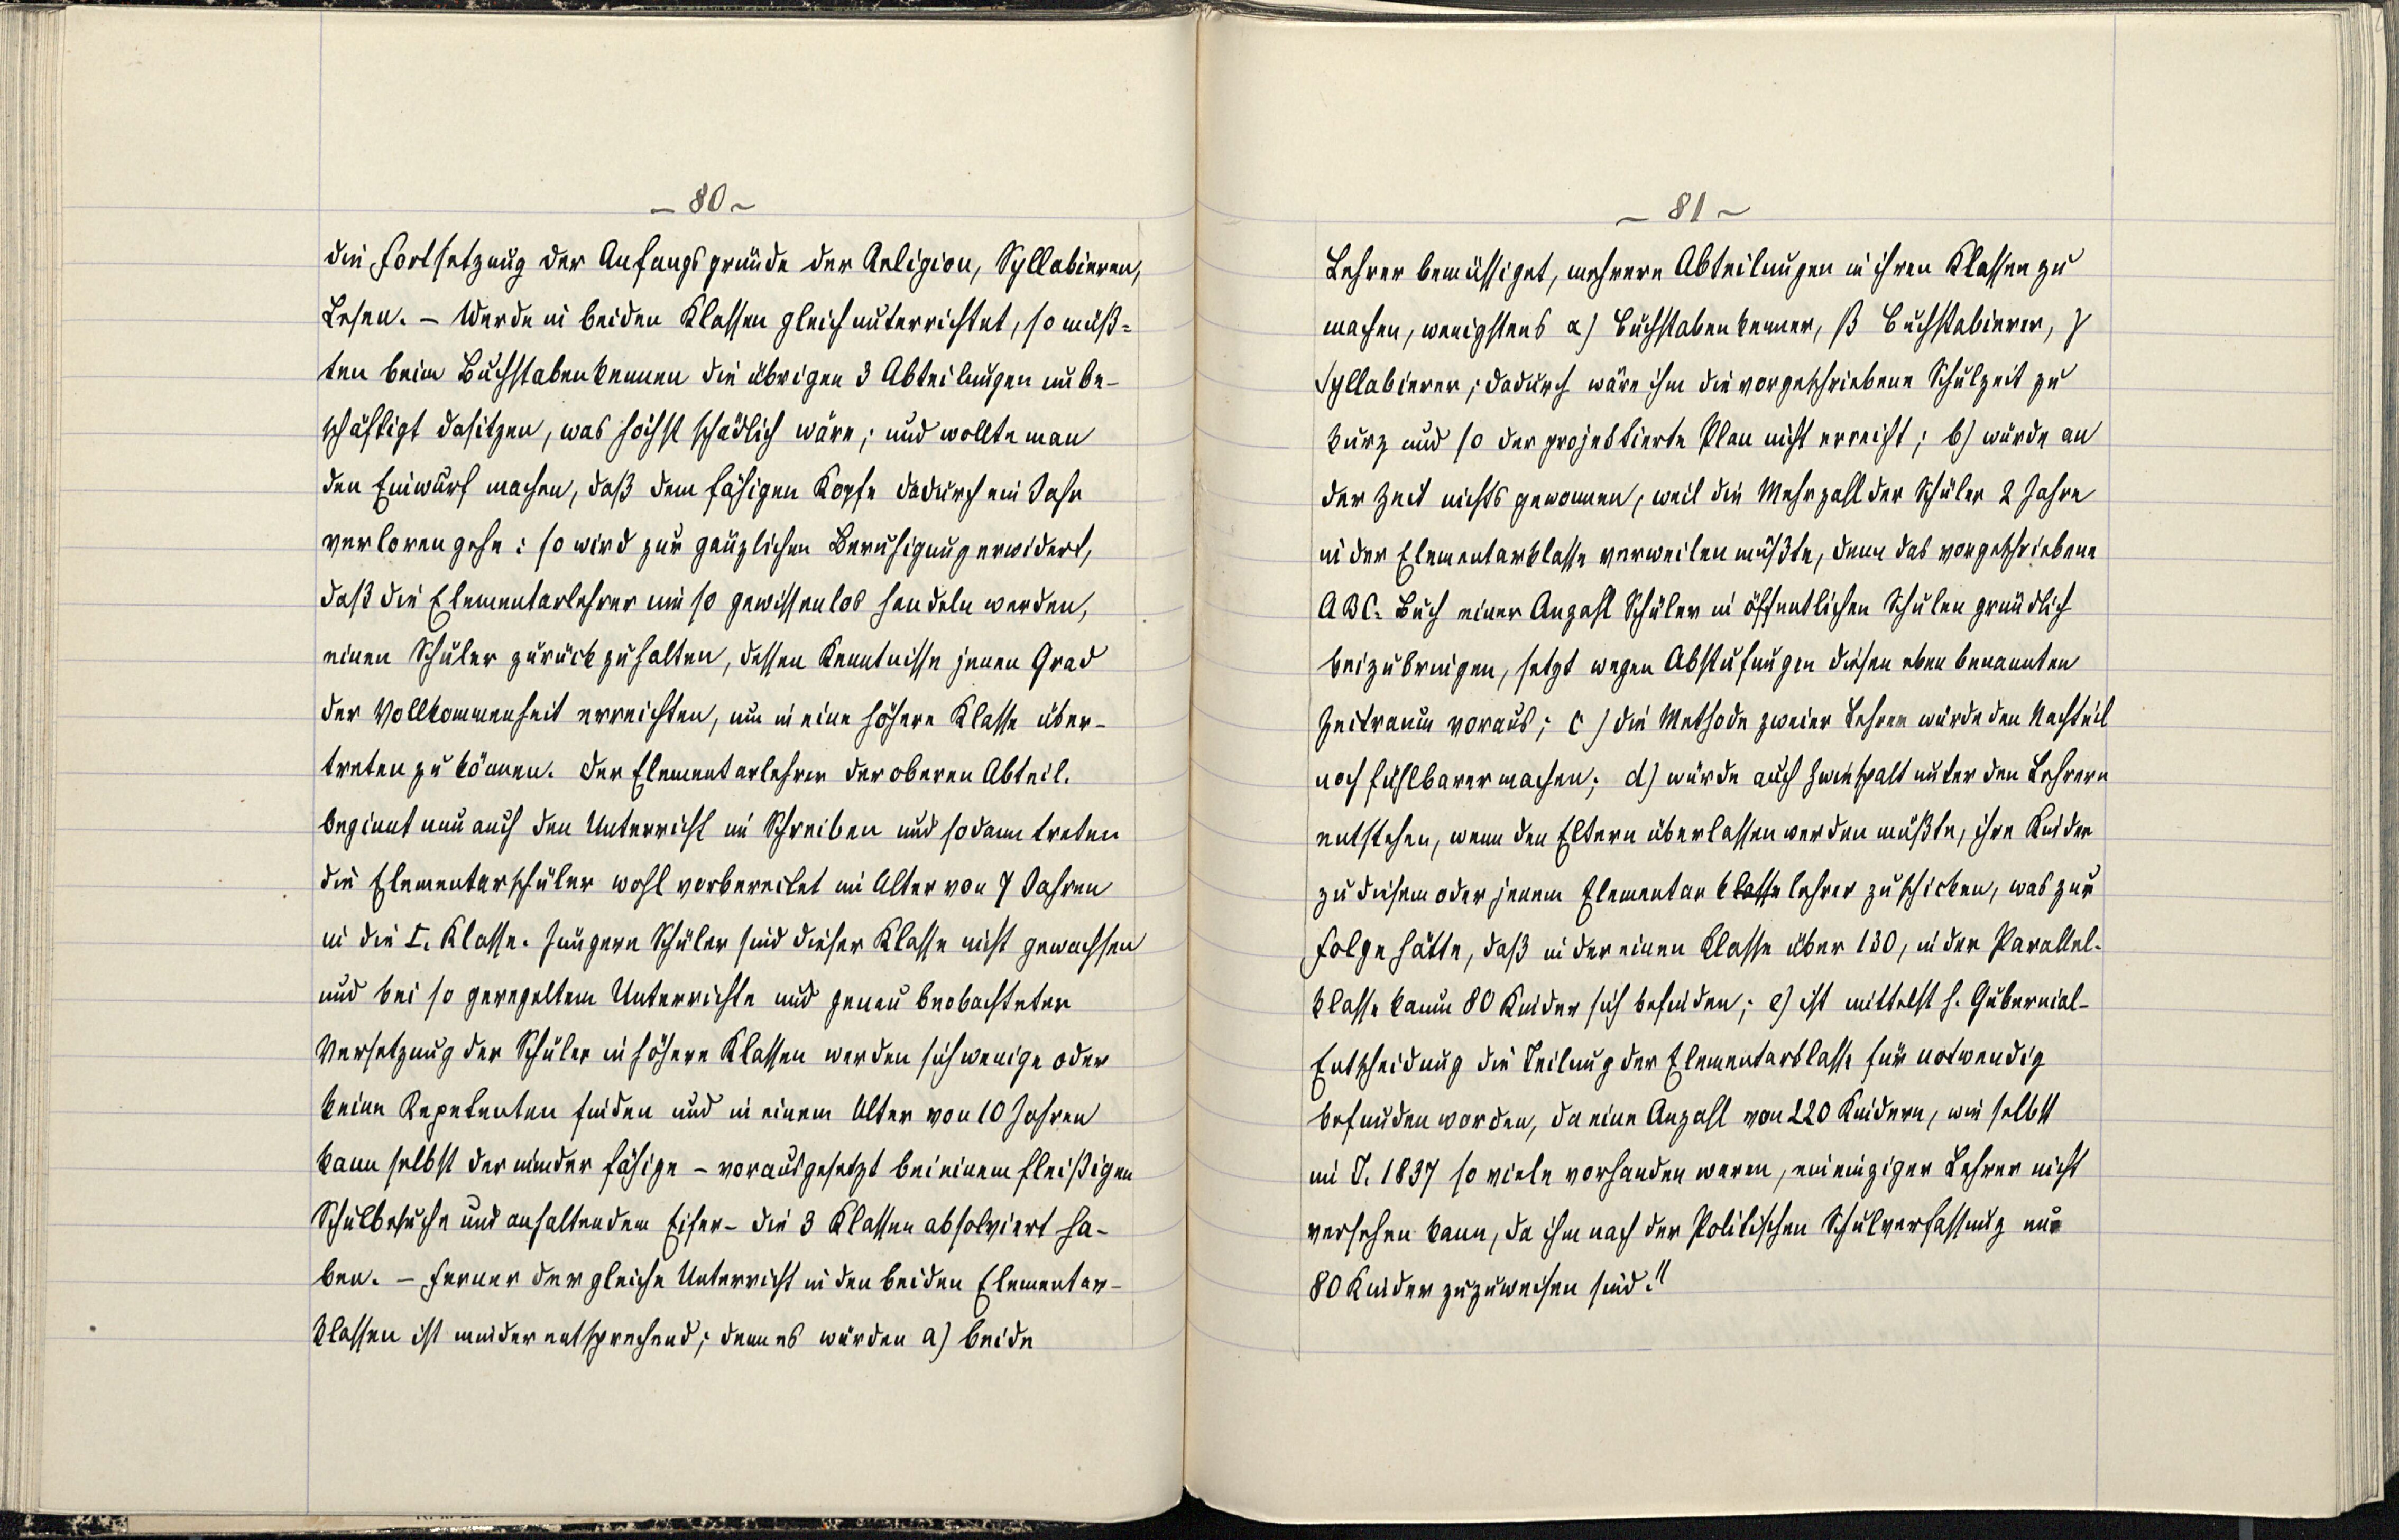 – 80 –
die Fortsetzung der Anfangsgründe der Religion, Syllabieren,
Lesen. – Werde in beiden Klassen gleich unterrichtet, so müß=
ten beim Buchstabenkennen die übrigen 3 Abteilungen unbe-
schäftigt dasitzen, was höchst schädlich wäre; und wollte man
den Einwurf machen, daß dem fähigen Kopfe dadurch ein Jahr
verloren gehe: so wird zur gänzlichen Beruhigung erwidert,
daß die Elementarlehrer nie so gewissenlos handeln werden,
einen Schüler zurückzuhalten, dessen Kenntnisse jenen Grad
der Vollkommenheit erreichten, um in eine höhere Klasse über-
treten zu können. Der Elementarlehrer der oberen Abteil.
beginnt nun auch den Unterricht im Schreiben und sodann treten
die Elementarschüler wohl vorbereitet im Alter von 7 Jahren
in die I. Klasse. Jüngere Schüler sind dieser Klasse nicht gewachsen
und bei so geregeltem Unterrichte und genau beobachteter
Versetzung der Schüler in höhere Klassen werden sich wenige oder
keine Repetenten finden und in einem Alter von 10 Jahren
kann selbst der minder fähige – vorausgesetzt bei einem fleißigen
Schulbesuche und anhaltendem Eifer – die 3 Klassen absolviert ha-
ben. – Ferner der gleiche Unterricht in den beiden Elementar-
klassen ist minder entsprechend; denn es würden a) beide
– 81 –
Lehrer bemüssiget, mehrere Abteilungen in ihren Klassen zu
machen, wenigstens α) Buchstabenkenner, β Buchstabierer, γ
Syllabierer; dadurch wäre ihm die vorgeschriebene Schulzeit zu
kurz und so der projektierte Plan nicht erreicht; b) würde an
der Zeit nichts gewonnen, weil die Mehrzahl der Schüler 2 Jahre
in der Elementarklasse verweilen müßte, denn das vorgeschriebene
ABC= Buch einer Anzahl Schüler in öffentlichen Schulen gründlich
beizubringen, setzt wegen Abstufungen diesen eben benannten
Zeitraum voraus; c) die Methode zweier Lehrer würde den Nachteil
noch fühlbarer machen; d) würde auch Zwiespalt unter den Lehrern
entstehen, wenn den Eltern überlassen werden müßte, ihre Kinder
zu diesem oder jenem Elementar klasse lehrer zu schicken, was zur
Folge hätte, daß in der einen Klasse über 130, in der Parallel-
klasse kaum 80 Kinder sich befinden; e) ist mittelst h. Gubernial-
Entscheidung die Teilung der Elementarklasse für notwendig
befunden worden, da eine Anzahl von 220 Kindern, wie selbst
im J. 1837 so viele vorhanden waren, ein einziger Lehrer nicht
versehen kann, da ihm nach der Politischen Schulverfassung nur
80 Kinder zuzuweisen sind."